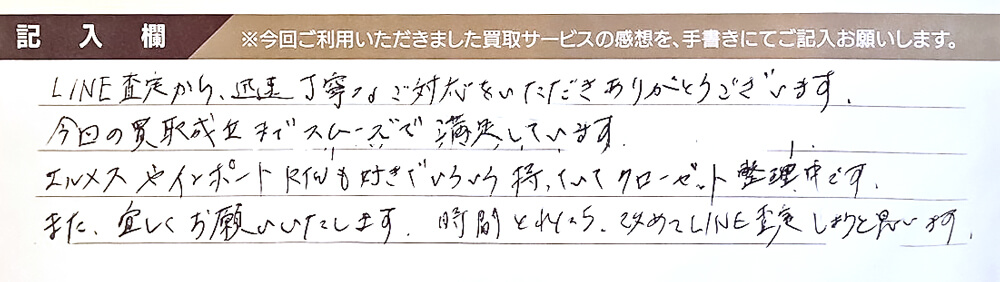 記入欄
※今回ご利用いただきました買取サービスの感想を、手書きにてご記入お願いします。
LINE査定から、迅速丁寧なご対応をいただきありがとうございます.
今回の買取成立までスムーズで満足しています.
エルメスやインポートRTWも好きでいろいろ持っていてクローゼット整理中です.
また、宜しくお願いいたします. 時間とれたら、改めてLINE査定しようと思います.